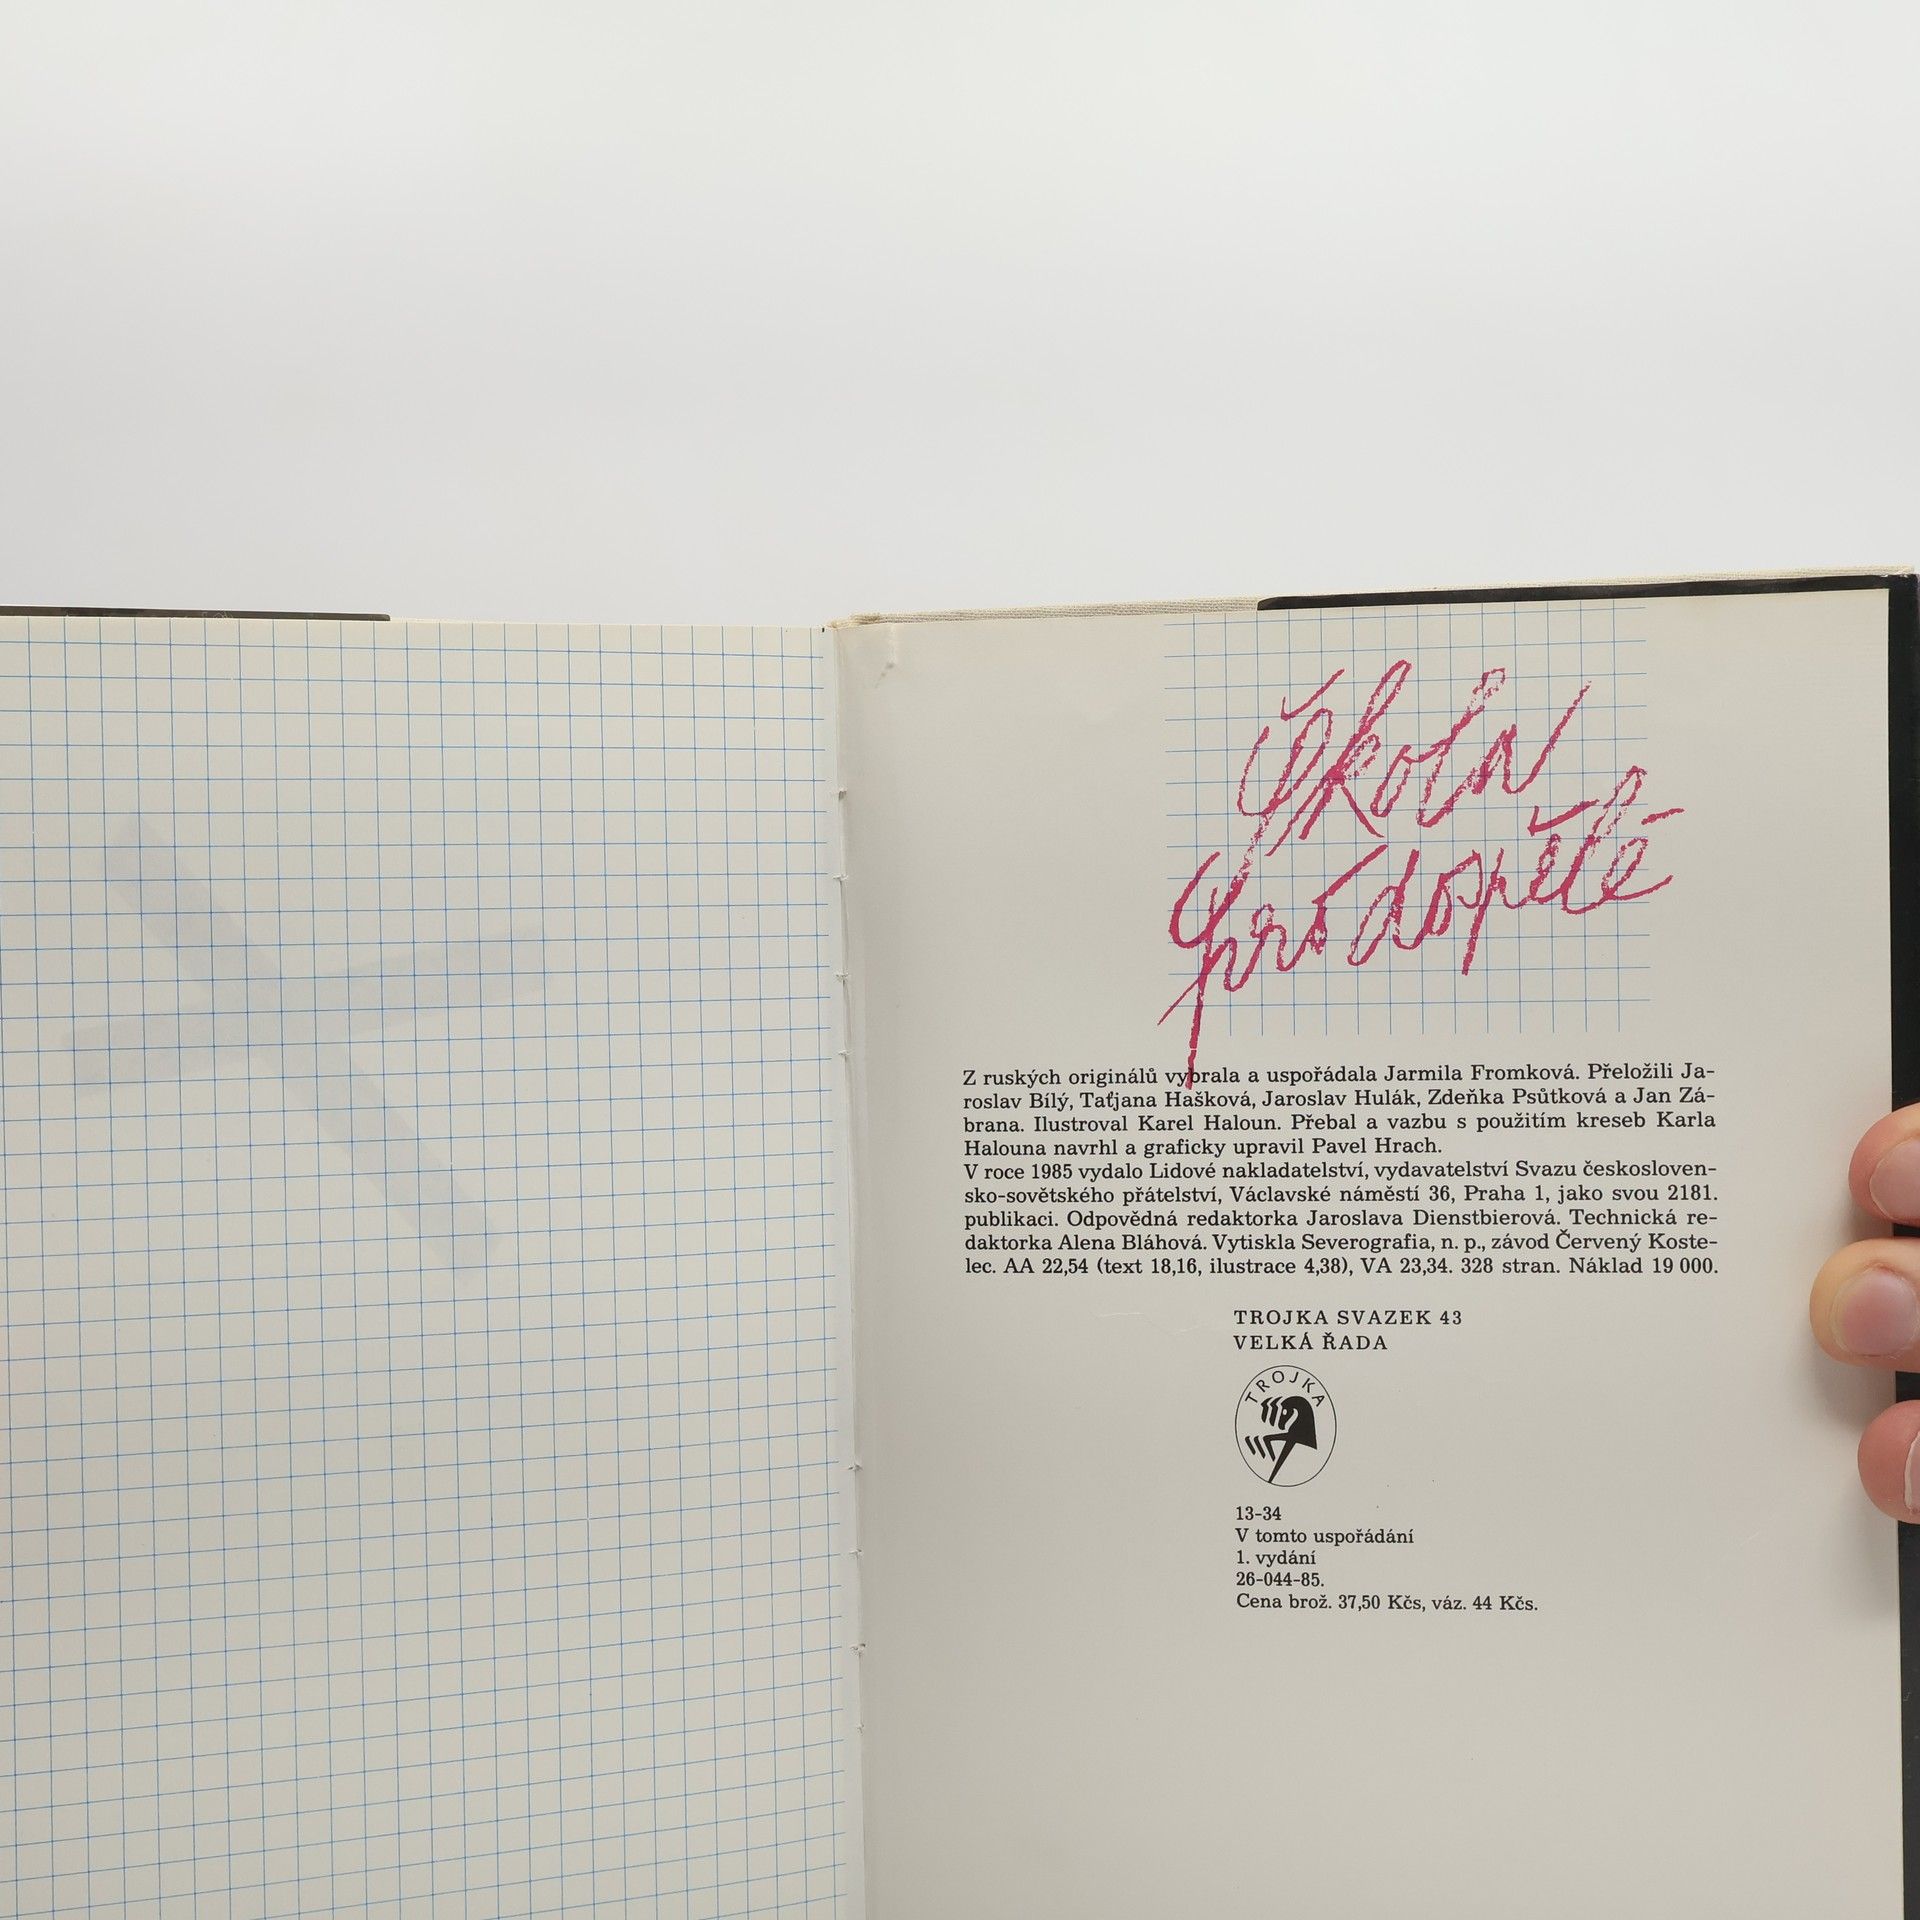 Škola
pro dospělé
Z ruských originálů vybrala a uspořádala Jarmila Fromková. Přeložili Ja-
roslav Bílý, Taťjana Hašková, Jaroslav Hulák, Zdeňka Psůtková a Jan Zá-
brana. Ilustroval Karel Haloun. Přebal a vazbu s použitím kreseb Karla
Halouna navrhl a graficky upravil Pavel Hrach.
V roce 1985 vydalo Lidové nakladatelství, vydavatelství Svazu českosloven-
sko-sovětského přátelství, Václavské náměstí 36, Praha 1, jako svou 2181.
publikaci. Odpovědná redaktorka Jaroslava Dienstbierová. Technická re-
daktorka Alena Bláhová. Vytiskla Severografia, n. p., závod Červený Koste-
lec. AA 22,54 (text 18,16, ilustrace 4,38), VA 23,34. 328 stran. Náklad 19 000.
TROJKA SVAZEK 43
VELKÁ ŘADA
TROJKA
13-34
V tomto uspořádání
1. vydání
26-044-85.
Cena brož. 37,50 Kčs, váz. 44 Kčs.